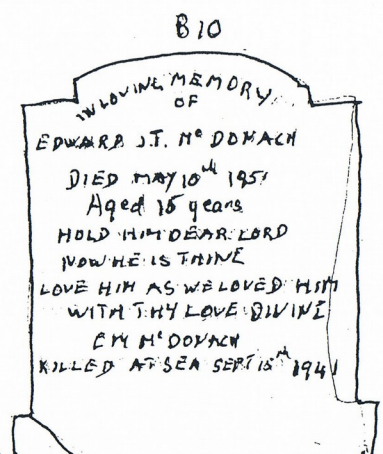 B10
IN LOVING MEMORY
OF
EDWARD J.T. McDONACH
DIED MAY 10th 1951
Aged 15 years
HOLD HIM DEAR LORD
NOW HE IS THINE
LOVE HIM AS WE LOVED HIM
WITH THY LOVE DIVINE
EM McDONACH
KILLED AT SEA SEPT 15th 1941